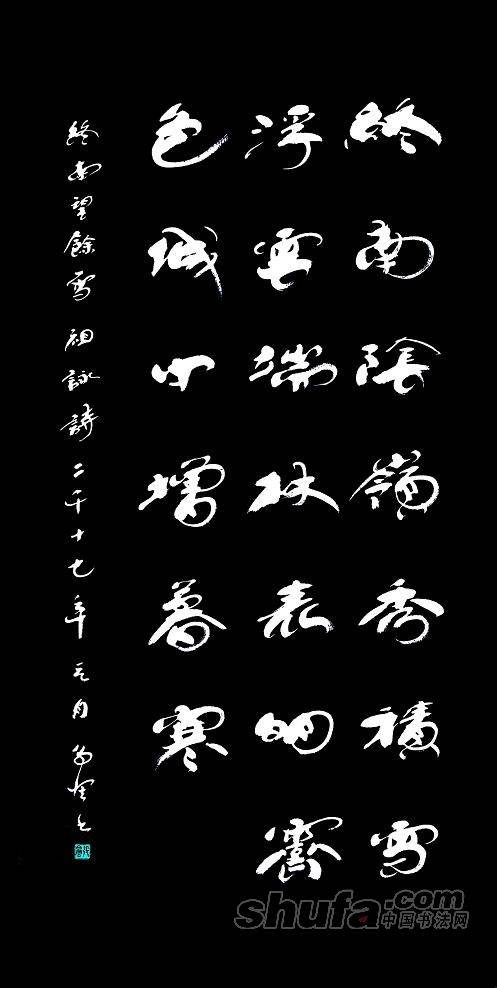 終南陰嶺秀積雪
浮雲端林表明霽
色城中增暮寒
終南望餘雪 祖詠詩 二千十七年元月
shufa.com
中国书法网